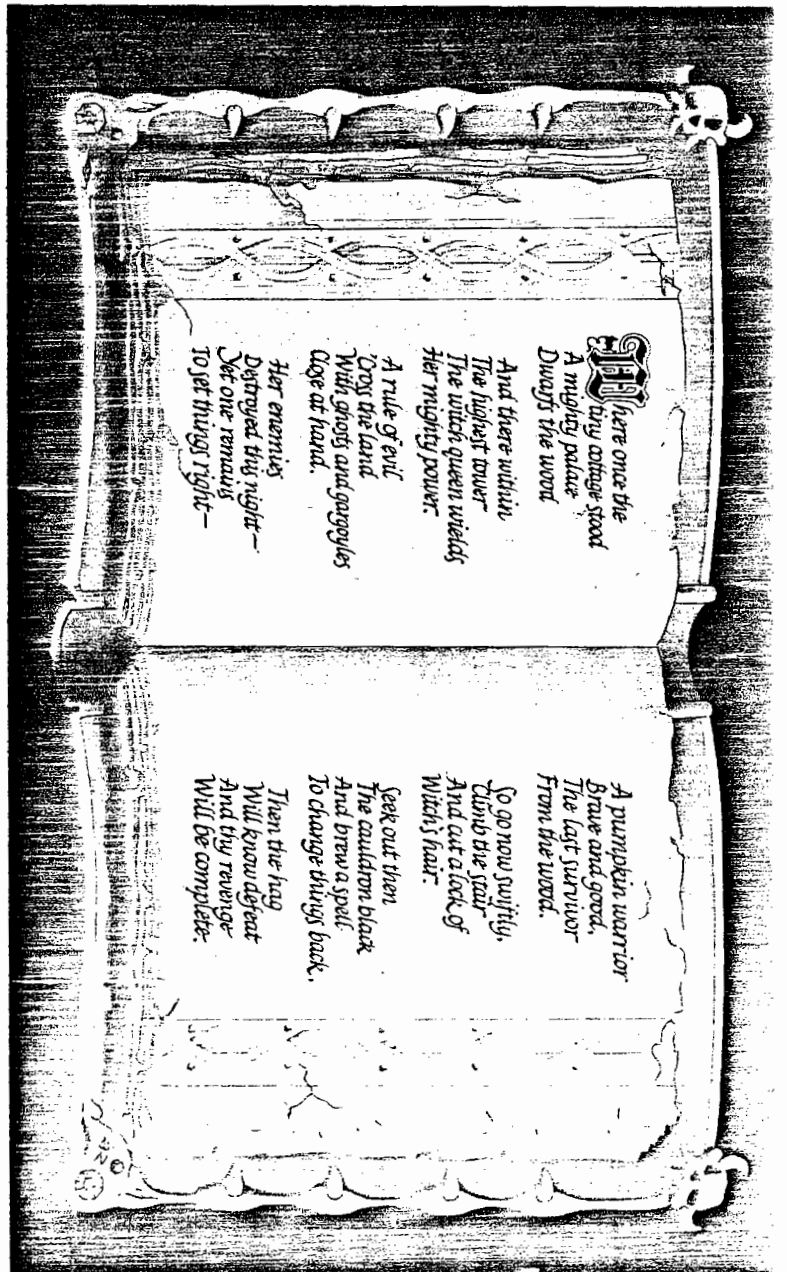 Where once the
tiny cottage stood
A mighty palace
Dwarfs the wood
And there within
The highest tower
The witch queen wields
Her mighty power.
A rule of evil
'Cross the land
With ghosts and gargoyles
Close at hand.
Her enemies
Destroyed this night—
Yet one remains
To set things right—
A pumpkin warrior
Brave and good,
The last survivor
From the wood.
So go now swiftly,
Climb the stair
And cut a lock of
Witch's hair.
Seek out then
The cauldron black
And brew a spell
To change things back,
Then the hag
Will know defeat
And thy revenge
Will be complete.